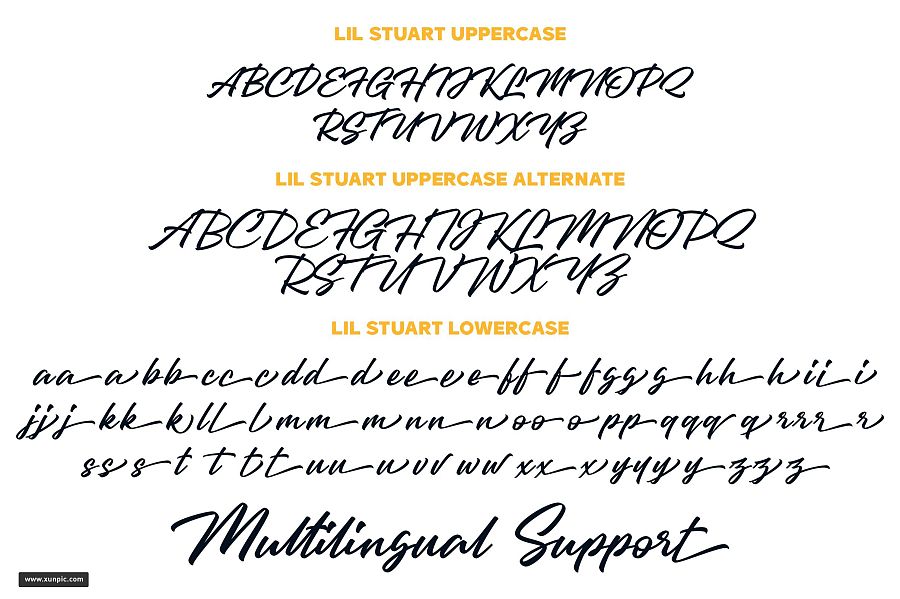 LIL STUART UPPERCASE
ABCDEFGHIJKLMNOPQ
RSTUVWXYZ
LIL STUART UPPERCASE ALTERNATE
ABCDEFGHIJKLMNOPQ
RSTUVWXYZ
LIL STUART LOWERCASE
aaabbbcccdddeeeefffffgggghhhiiii
jjjjkkklllmmmnnnooopppqqqqrrrrr
ssssttttuuuvvwwxxxyyyyzzzz
Multilingual Support
www.xunpic.com